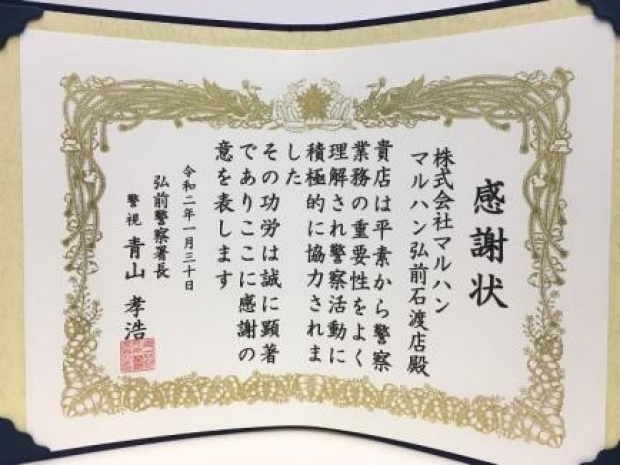 感謝状
株式会社マルハン
マルハン弘前石渡店殿
貴店は平素から警察
業務の重要性をよく
理解され警察活動に
積極的に協力されま
した
その功労は誠に顕著
でありここに感謝の
意を表します
令和二年一月三十日
弘前警察署長
警視 青山孝浩